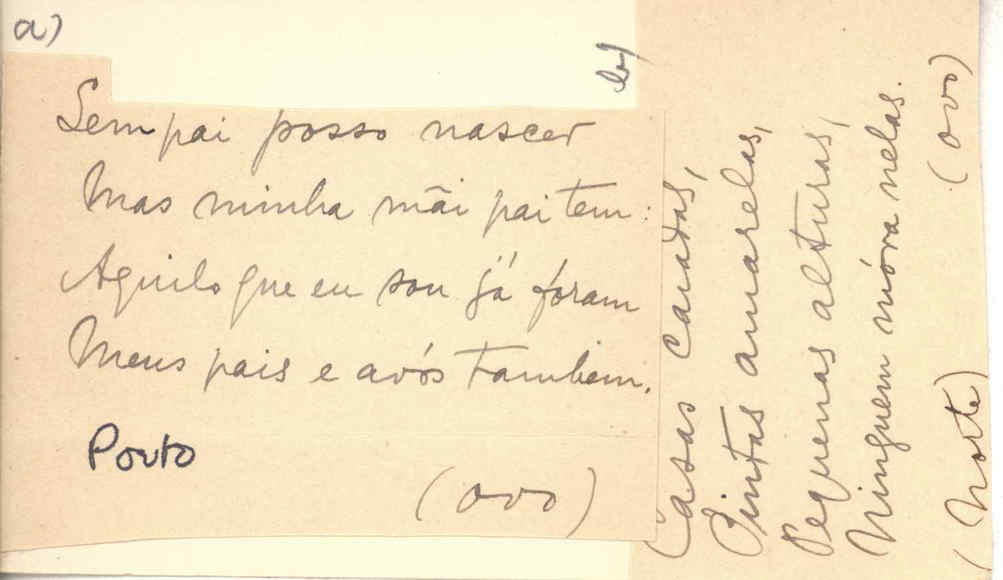 a)
Sem pai posso nascer
Mas minha mãi pai tem:
Aquilo que eu sou já foram
Meus pais e avós tambem.
Porto
(ovo)
b)
Casas caiadas,
Pintas amarelas,
Pequenas alturas,
Ninguem móra nelas.
(Norte) (ovo)